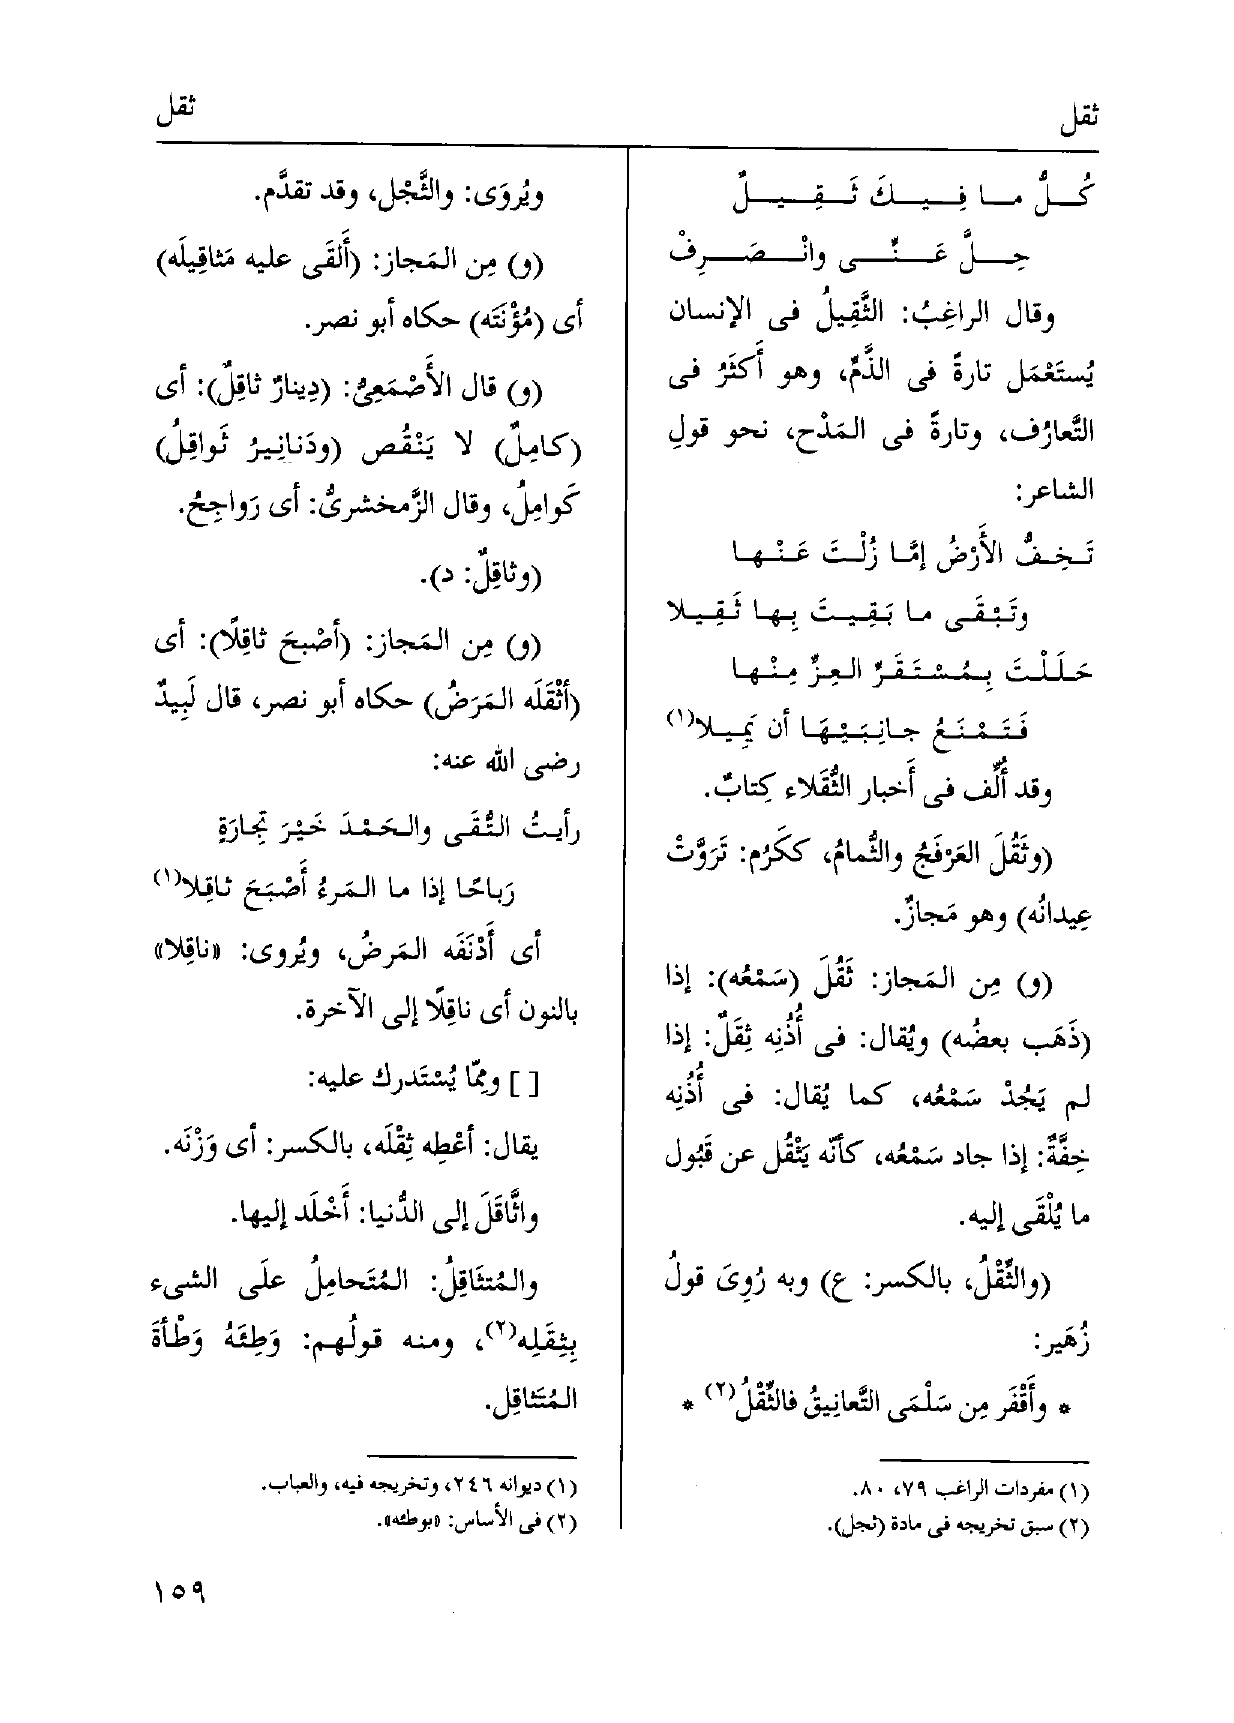 ثقل
ثقل
كُـلُّ مـا فِـيـكَ ثَـقِـيـلٌ
جِـلَّ عَـنِّـى وانْـصَـرِفْ
وقال الراغِبُ: الثَّقِيلُ فى الإنسان
يُستَعْمَل تارةً فى الذَّمِّ، وهو أَكثَرُ فى
التَّعارُف، وتارةً فى المَدْحِ، نحو قولِ
الشاعر:
تَـخِـفُّ الأَرْضُ إمَّا زُلْـتَ عَـنْـهـا
وتَـبْـقَـى ما بَـقِـيـتَ بِـها ثَـقِـيـلا
حَـلَـلْـتَ بِـمُـسْـتَـقَـرِّ الـعِـزِّ مِـنْـهـا
فَـتَـمْـنَـعُ جـانِـبَـيْـهَـا أن تَمِـيـلا(١)
وقد أُلِّف فى أَخبار الثُّقَلاءِ كِتابٌ.
(وثَقُلَ العَرْفَجُ والثُّمامُ، ككَرُم: تَرَوَّتْ
عِيدانُه) وهو مَجازٌ.
(و) مِن المَجاز: ثَقُلَ (سَمْعُه): إذا
(ذَهَب بعضُه) ويُقال: فى أُذُنِه ثِقَلٌ: إذا
لم يَجُدْ سَمْعُه، كما يُقال: فى أُذُنِه
خِفَّةٌ: إذا جاد سَمْعُه، كأنّه يَثْقُل عن قَبُول
ما يُلْقَى إليه.
(والثِّقْلُ، بالكسر: ع) وبه رُوِىَ قولُ
زُهَير:
* وأَقْفَر مِن سَلْمَى التَّعانِيقُ فالثِّقْلُ(٢) *
(١) مفردات الراغب ٧٩، ٨٠.
(٢) سبق تخريجه فى مادة (ثجل).
ويُروَى: والثَّجْل، وقد تقدَّم.
(و) مِن المَجاز: (أَلقَى عليه مَثاقِيلَه)
أى (مُؤْنَتَه) حكاه أبو نصر.
(و) قال الأَصْمَعِىُّ: (دِينارٌ ثاقِلٌ): أى
(كامِلٌ) لا يَنْقُص (ودَنانِيرُ ثَواقِلُ)
كَوامِلُ، وقال الزَّمخشرىُّ: أى رَواجِحُ.
(وثاقِلٌ: د).
(و) مِن المَجاز: (أصْبحَ ثاقِلًا): أى
(أثْقَلَه المَرَضُ) حكاه أبو نصر، قال لَبِيدٌ
رضى الله عنه:
رأيتُ التُّقَى والحَمْدَ خَيْرَ تِجَارَةٍ
رَباحًا إذا ما المَرءُ أَصْبَحَ ثاقِلا(١)
أى أَدْنَفَه المَرضُ، ويُروى: «ناقِلا»
بالنون أى ناقِلًا إلى الآخرة.
[ ] ومِمّا يُسْتَدرك عليه:
يقال: أعْطِه ثِقْلَه، بالكسر: أى وَزْنَه.
واثَّاقَلَ إلى الدُّنيا: أَخْلَد إليها.
والمُتثَاقِلُ: المُتَحامِلُ علَى الشىء
بِثِقَلِه(٢)، ومنه قولُهم: وَطِئَهُ وَطْأةَ
المُتَثَاقِل.
(١) ديوانه ٢٤٦، وتخريجه فيه، والعباب.
(٢) فى الأساس: «بوطئه».
١٥٩